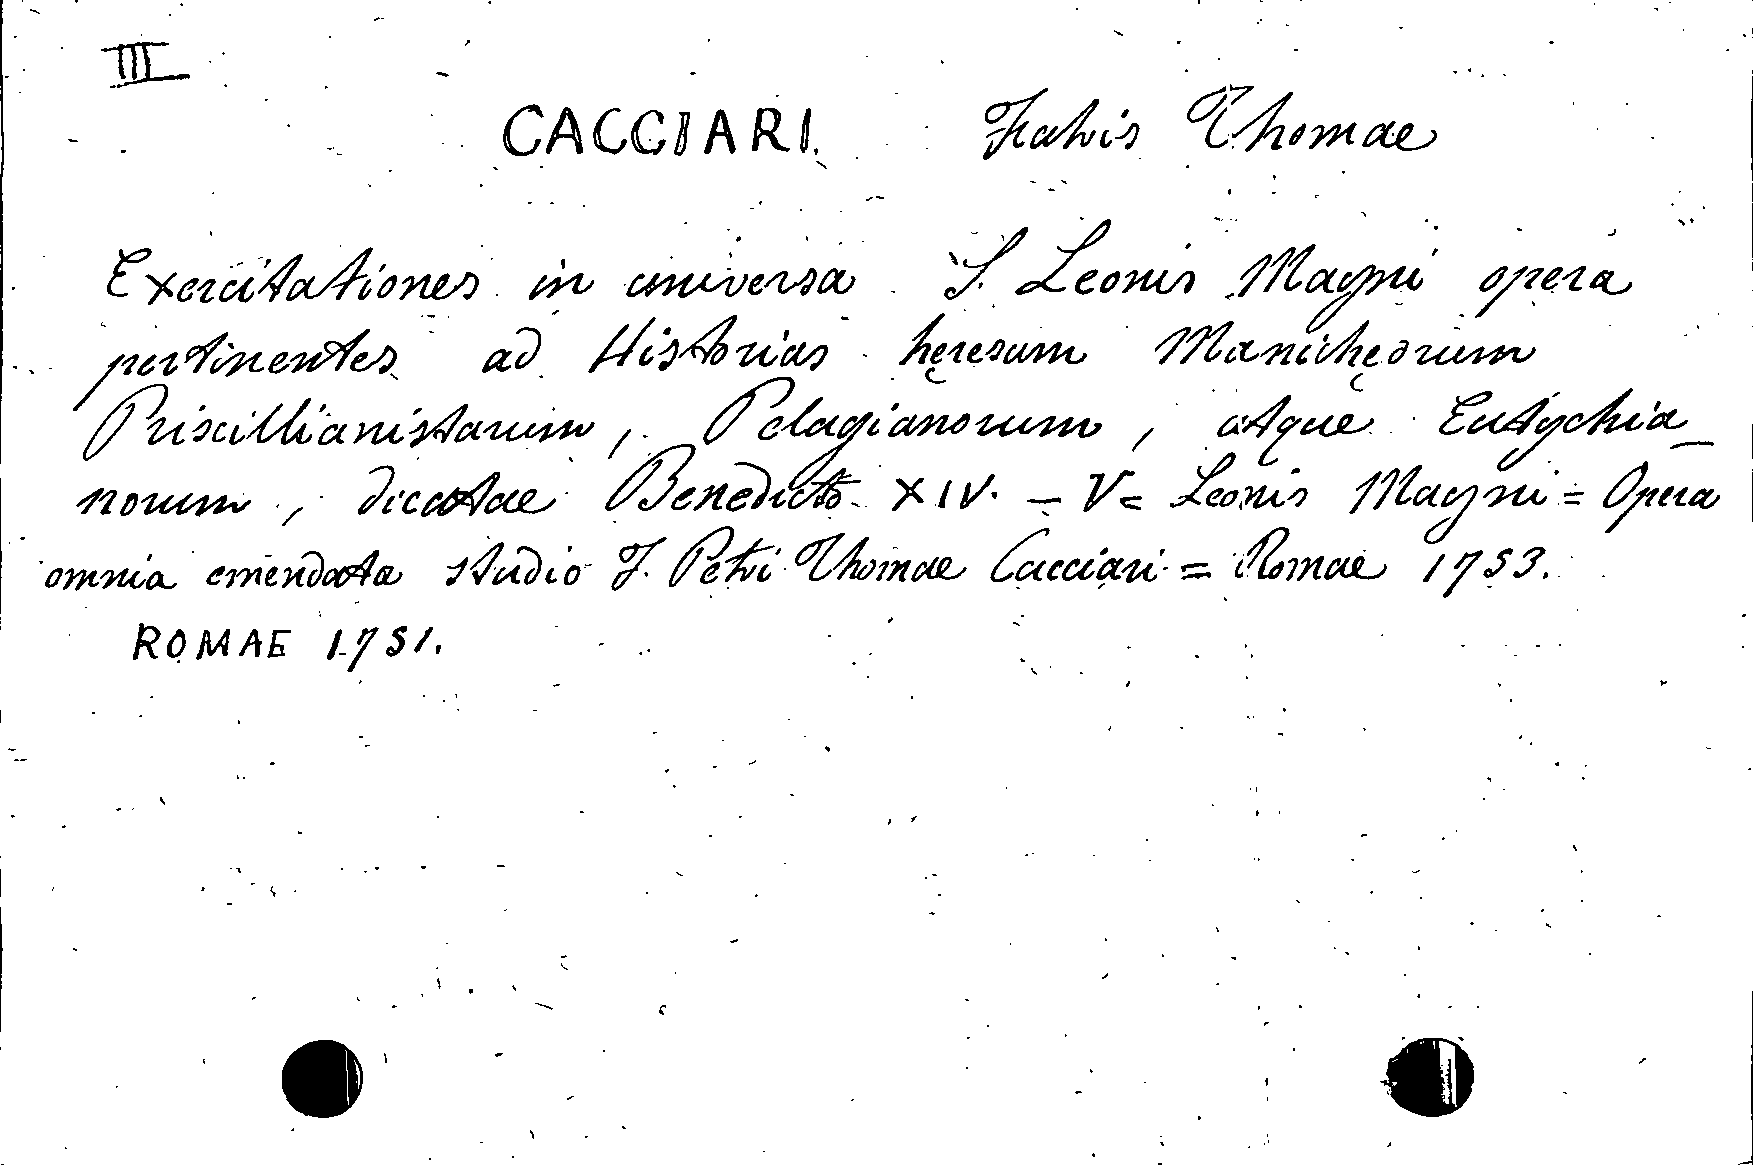 III
CACCIARI. Fratris Thomae
Exercitationes in universa S. Leonis Magni opera
pertinentes ad Historias hęresum Manichęorum
Priscillianistarum, Pelagianorum, atque Eutychia_
norum, dicatae Benedicto XIV. - V= Leonis Magni = Opera
omnia emendata studio F. Petri Thomae Cacciari = Romae 1753.
ROMAE 1751.